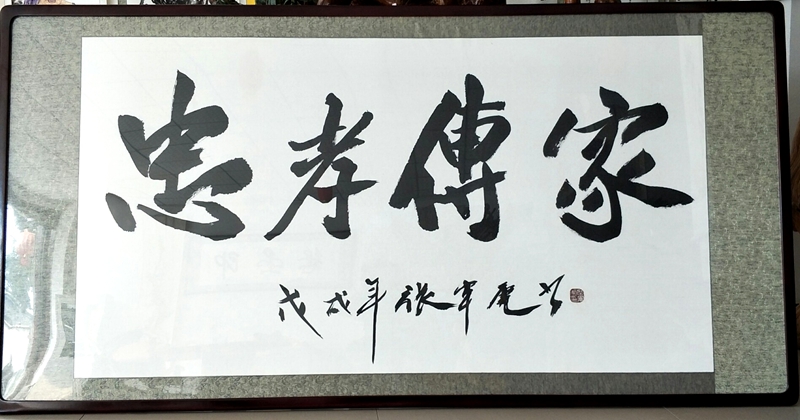 忠孝傳家
戊戌年张军虎书